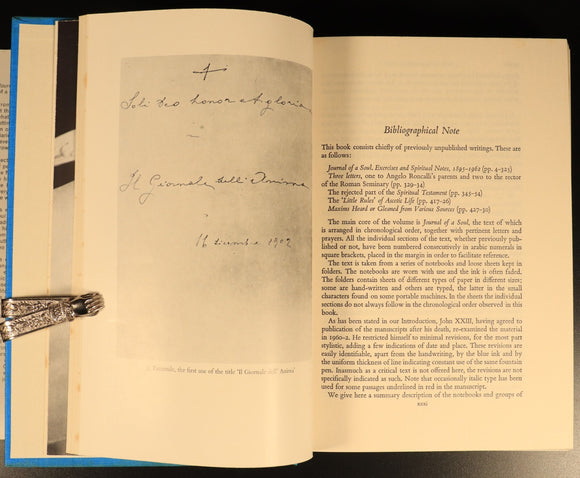 Soli Deo honor et gloria
Il Giornale dell'Anima
16 dicembre 1902
Facsimile, the first use of the title 'Il Giornale dell' Anima'
Bibliographical Note
This book consists chiefly of previously unpublished writings. These are
as follows:
Journal of a Soul, Exercises and Spiritual Notes, 1895–1962 (pp. 4–325)
Three letters, one to Angelo Roncalli's parents and two to the rector
of the Roman Seminary (pp. 329–34)
The rejected part of the Spiritual Testament (pp. 345–54)
The 'Little Rules' of Ascetic Life (pp. 417–26)
Maxims Heard or Gleaned from Various Sources (pp. 427–30)
The main core of the volume is Journal of a Soul, the text of which
is arranged in chronological order, together with pertinent letters and
prayers. All the individual sections of the text, whether previously pub-
lished or not, have been numbered consecutively in arabic numerals in
square brackets, placed in the margin in order to facilitate reference.
The text is taken from a series of notebooks and loose sheets kept in
folders. The notebooks are worn with use and the ink is often faded.
The folders contain sheets of different types of paper in different sizes;
some are hand-written and others are typed, the latter in the small
characters found on some portable machines. In the sheets the individual
sections do not always follow in the chronological order observed in this
book.
As has been stated in our Introduction, John XXIII, having agreed to
publication of the manuscripts after his death, re-examined the material
in 1960–2. He restricted himself to minimal revisions, for the most part
stylistic, adding a few indications of date and place. These revisions are
easily identifiable, apart from the handwriting, by the blue ink and by
the uniform thickness of line indicating constant use of the same fountain
pen. Inasmuch as a critical text is not offered here, the revisions are not
specifically indicated as such. Note that occasionally italic type has been
used for some passages underlined in red in the manuscript.
We give here a summary description of the notebooks and groups of
xxxi